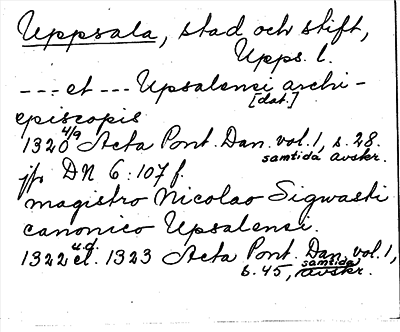 Uppsala, stad och stift,
Upps. l.
--- et --- Upsalensi archi-
[dat.]
episcopis
1320 4/9 Acta Pont. Dan. vol. 1, s. 28.
samtida avskr.
jfr DN 6:107 f.
magistro Nicolao Sigwasti
canonico Upsalensi.
1322 u.d. el. 1323 Acta Pont. Dan. vol. 1,
s. 45, samtida avskr.